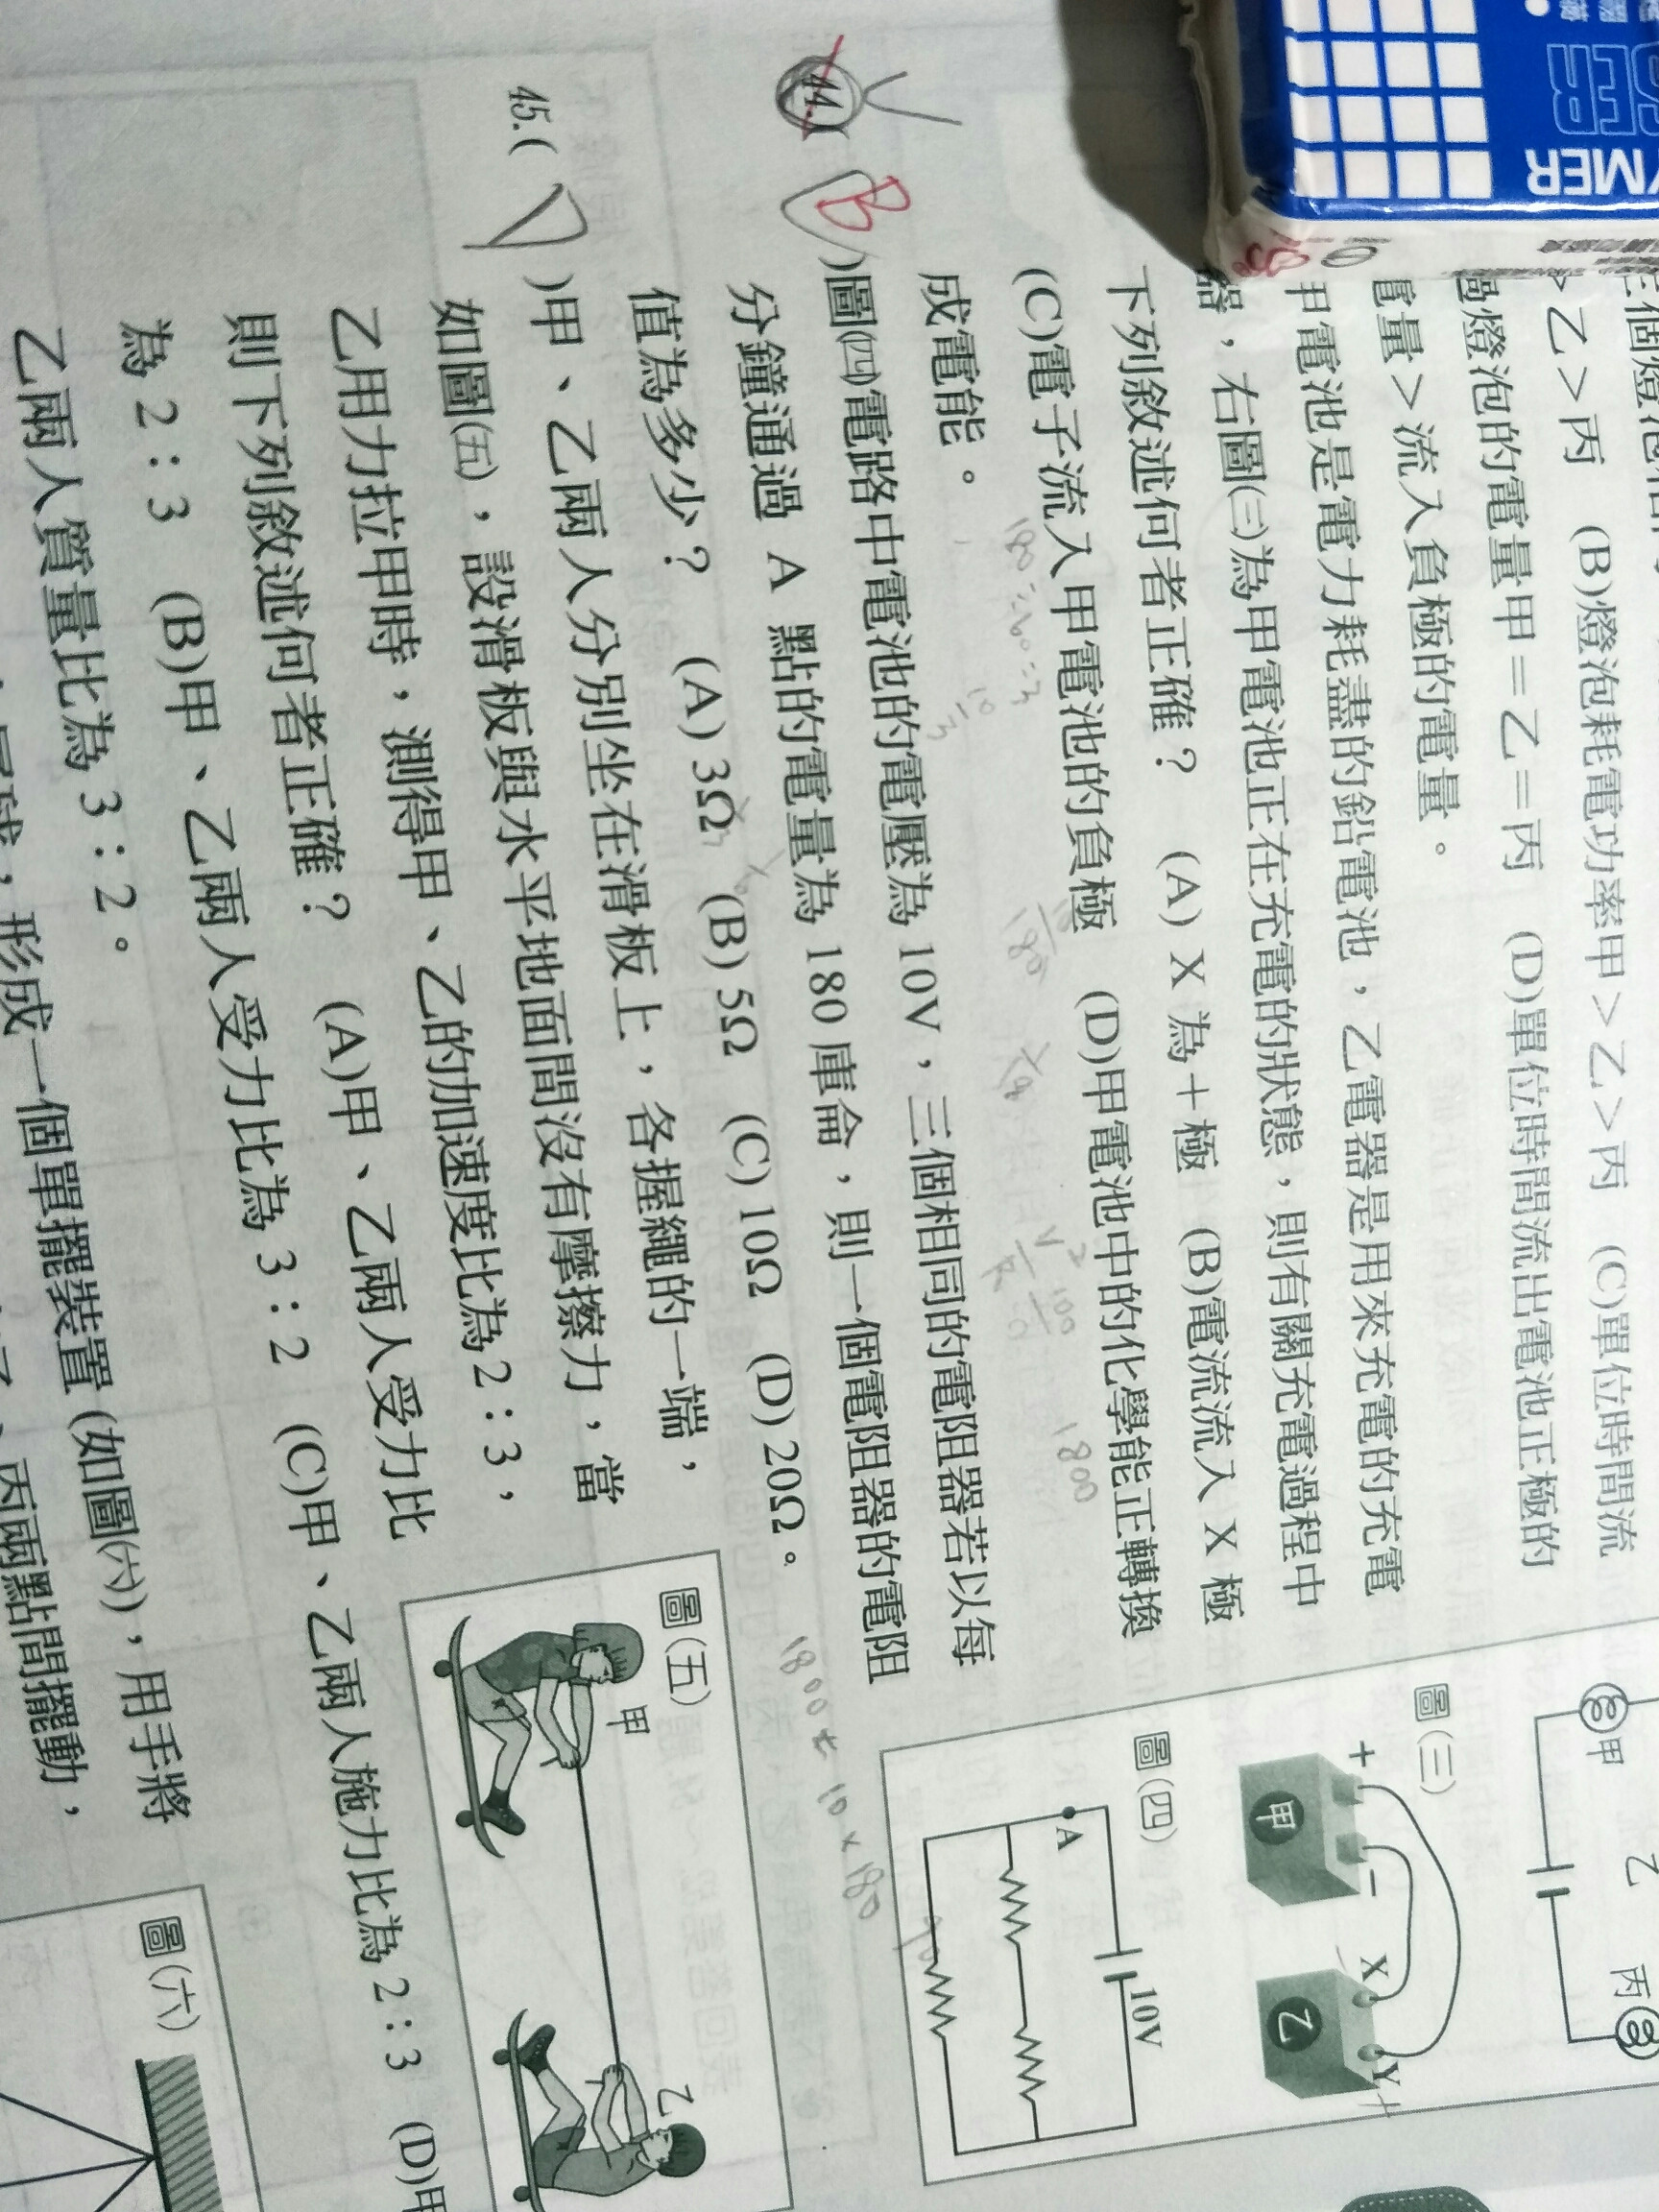 >乙>丙 (B)燈泡耗電功率甲>乙>丙 (C)單位時間流
過燈泡的電量甲=乙=丙 (D)單位時間流出電池正極的
電量>流入負極的電量。
甲電池是電力耗盡的鉛電池,乙電器是用來充電的充電
器,右圖㈢為甲電池正在充電的狀態,則有關充電過程中
下列敘述何者正確? (A) X 為+極 (B)電流流入 X 極
(C)電子流入甲電池的負極 (D)甲電池中的化學能正轉換
成電能。
44.( B )圖㈣電路中電池的電壓為 10V,三個相同的電阻器若以每
分鐘通過 A 點的電量為 180 庫侖,則一個電阻器的電阻
值為多少? (A) 3Ω (B) 5Ω (C) 10Ω (D) 20Ω。
45.( D )甲、乙兩人分別坐在滑板上,各握繩的一端,
如圖㈤,設滑板與水平地面間沒有摩擦力,當
乙用力拉甲時,測得甲、乙的加速度比為2:3,
則下列敘述何者正確? (A)甲、乙兩人受力比
為 2:3 (B)甲、乙兩人受力比為 3:2 (C)甲、乙兩人施力比為 2:3 (D)甲
乙兩人質量比為 3:2。
形成一個單擺裝置 (如圖㈥),用手將
丙兩點間擺動,
甲
乙
丙
圖(三)
+
−
甲
X
Y
乙
圖(四)
A
10V
圖(五)
甲
乙
圖(六)
180÷60=3
1800
1800=10×180
YMER